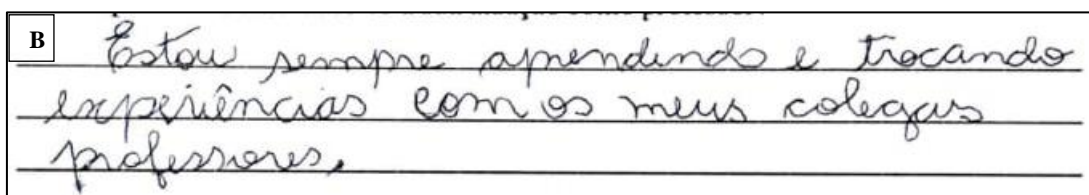 B
Estou sempre aprendendo e trocando
experiências com os meus colegas
professores.